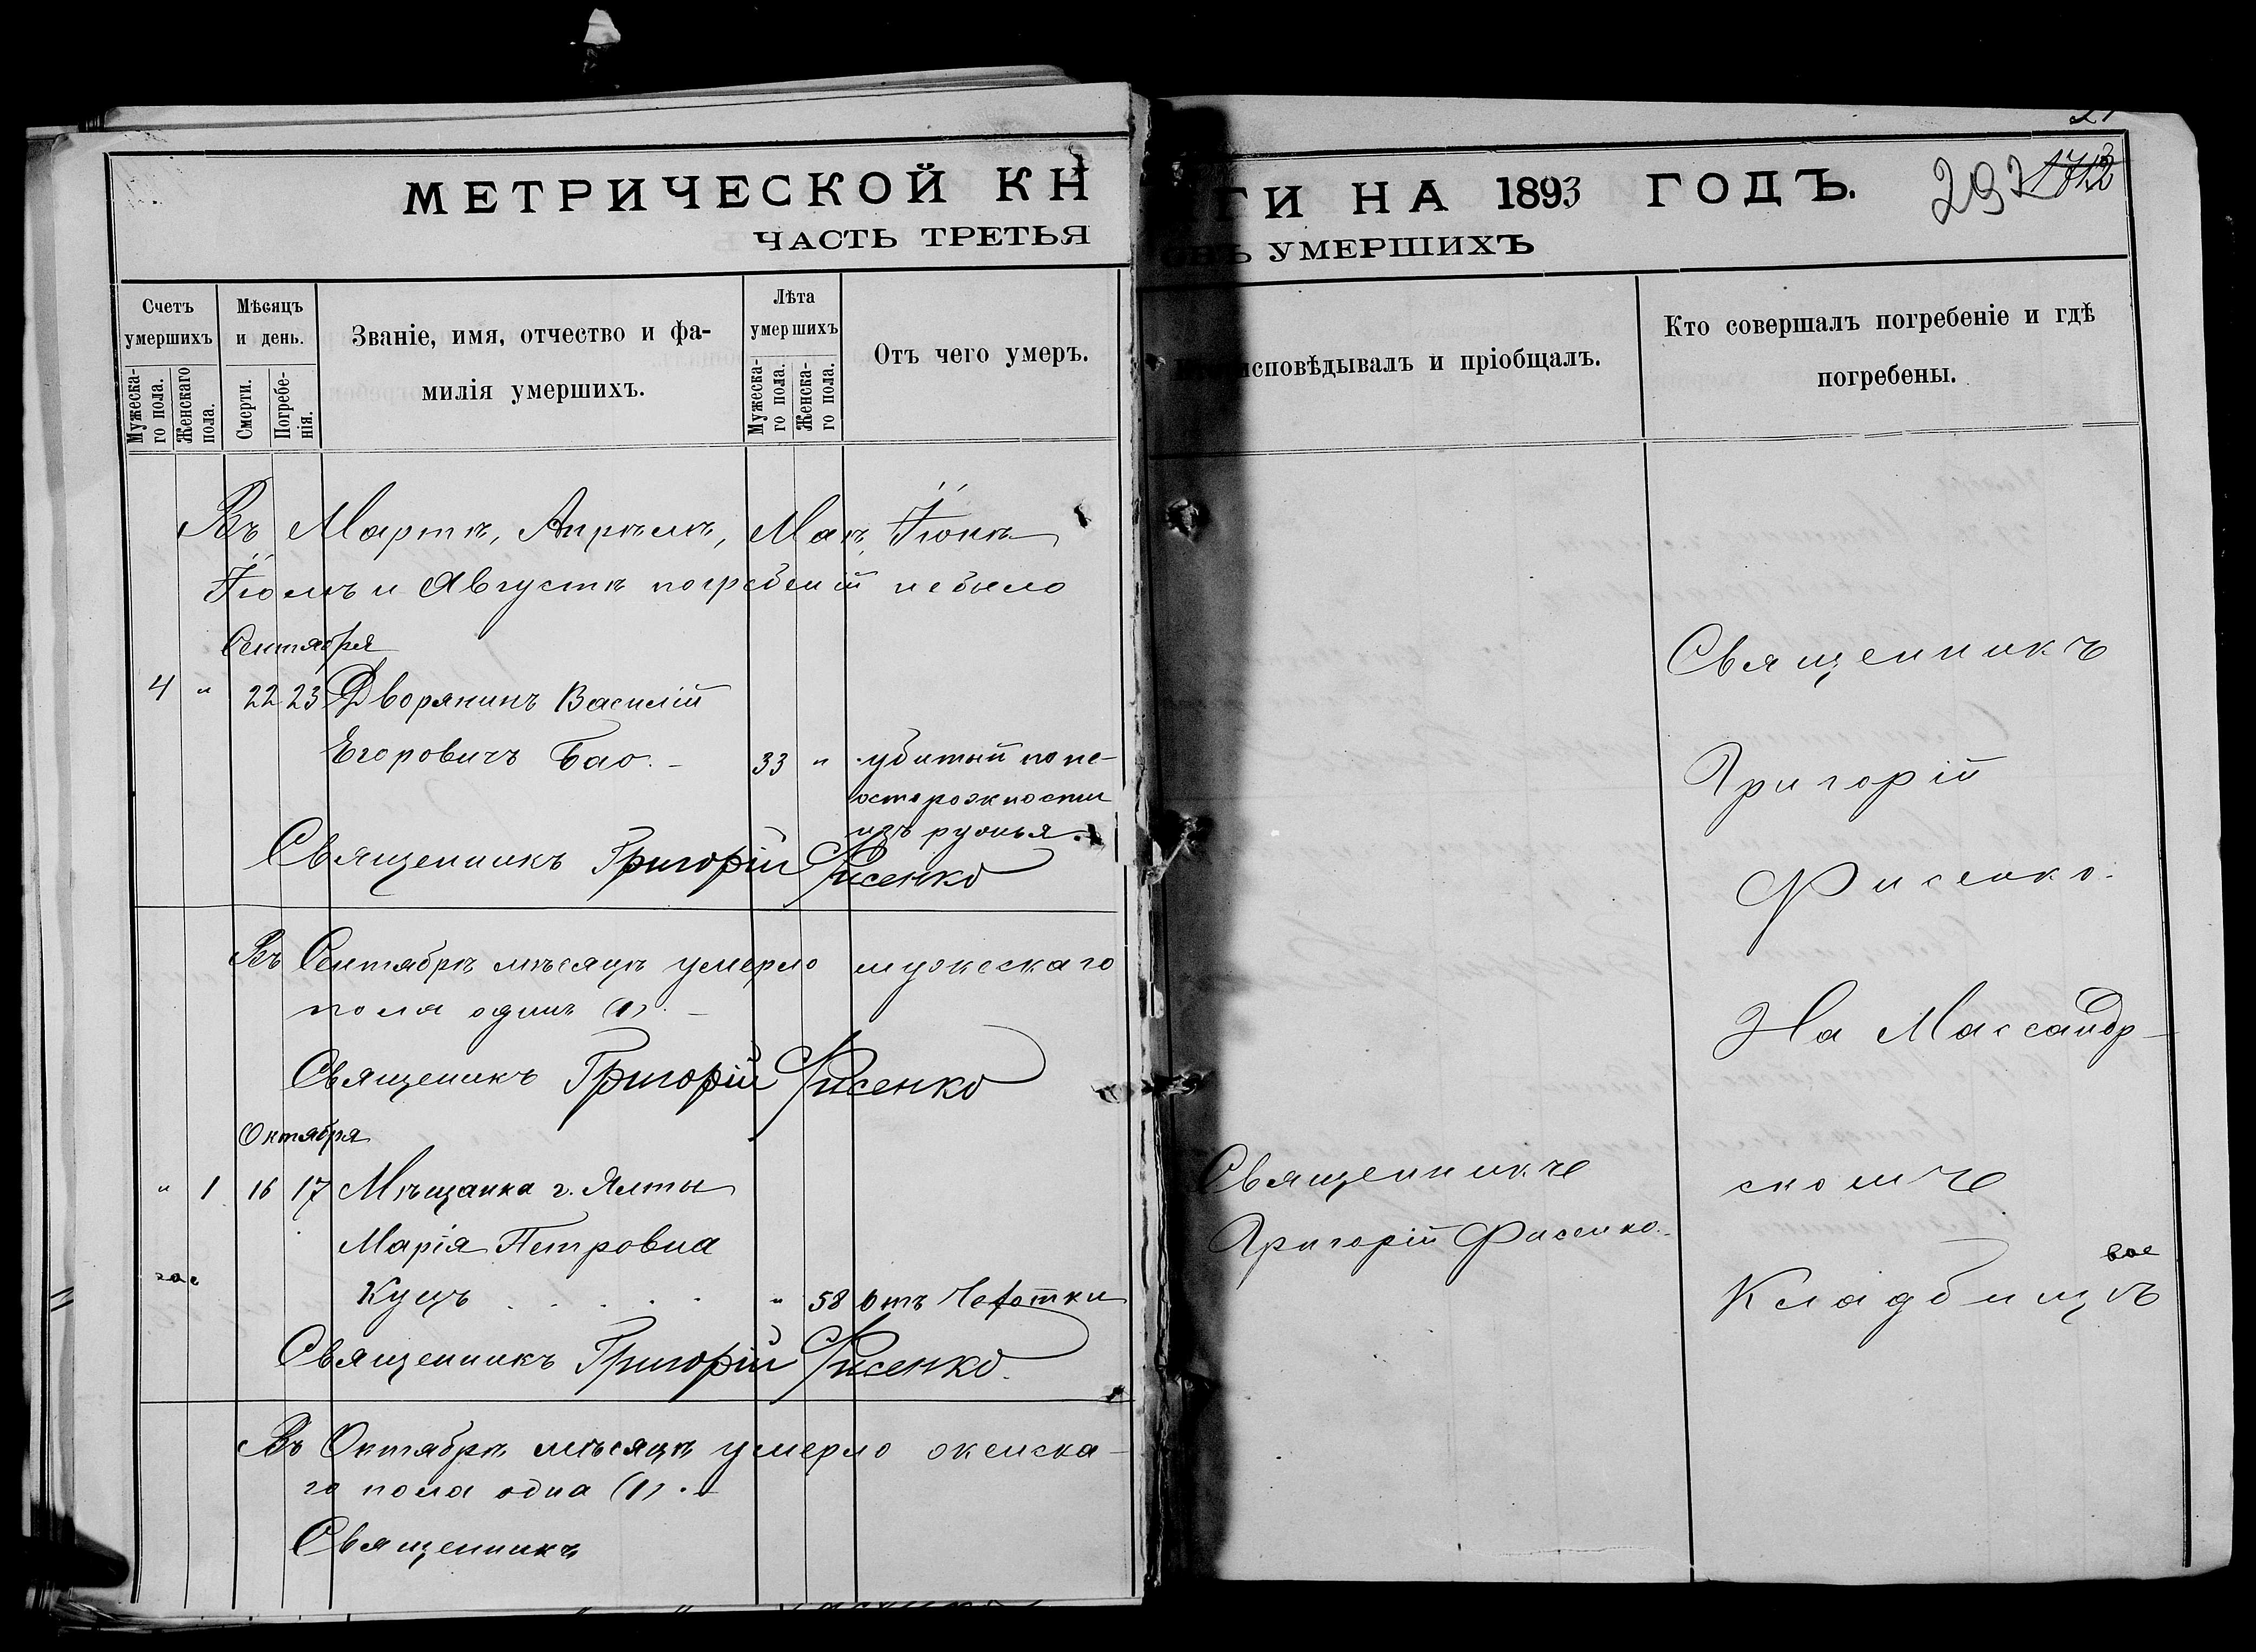 МЕТРИЧЕСКОЙ КН
ЧАСТЬ ТРЕТЬЯ
Счетъ умершихъ
Мужеска-го пола.
Женскаго пола.
Мѣсяцъ и день.
Смерти.
Погребе-нія.
Званіе, имя, отчество и фа-
милія умершихъ.
Лѣта умершихъ
Мужеска-го пола.
Женска-го пола.
Отъ чего умеръ.
Въ Мартѣ, Апрѣлѣ, Маѣ, Іюнѣ
Іюлѣ и Августѣ погребеній не было
Сентября
4 " 22 23 Дворянинъ Василій
Егоровичъ Бао. - 33 " убитый по не-
осторожности
изъ ружья.
Священникъ Григорій Фисенко
Въ Сентябрѣ мѣсяцѣ умерло мужескаго
пола одинъ (1). -
Священникъ Григорій Фисенко
Октября
" 1 16 17 Мѣщанка г. Ялты
Марія Петровна
Куцъ . . . . . " 58 Отъ Чахотки
Священникъ Григорій Фисенко.
Въ Октябрѣ мѣсяцѣ умерло женска-
го пола одна (1). -
Священникъ
ГИ НА 1893 ГОДЪ.
292
ОВЪ УМЕРШИХЪ
исповѣдывалъ и пріобщалъ.
Кто совершалъ погребеніе и гдѣ
погребены.
Священникъ
Григорій
Фисенко.
На Массандр-
Священникъ
Григорій Фисенко.
скомъ
Кладбищѣ